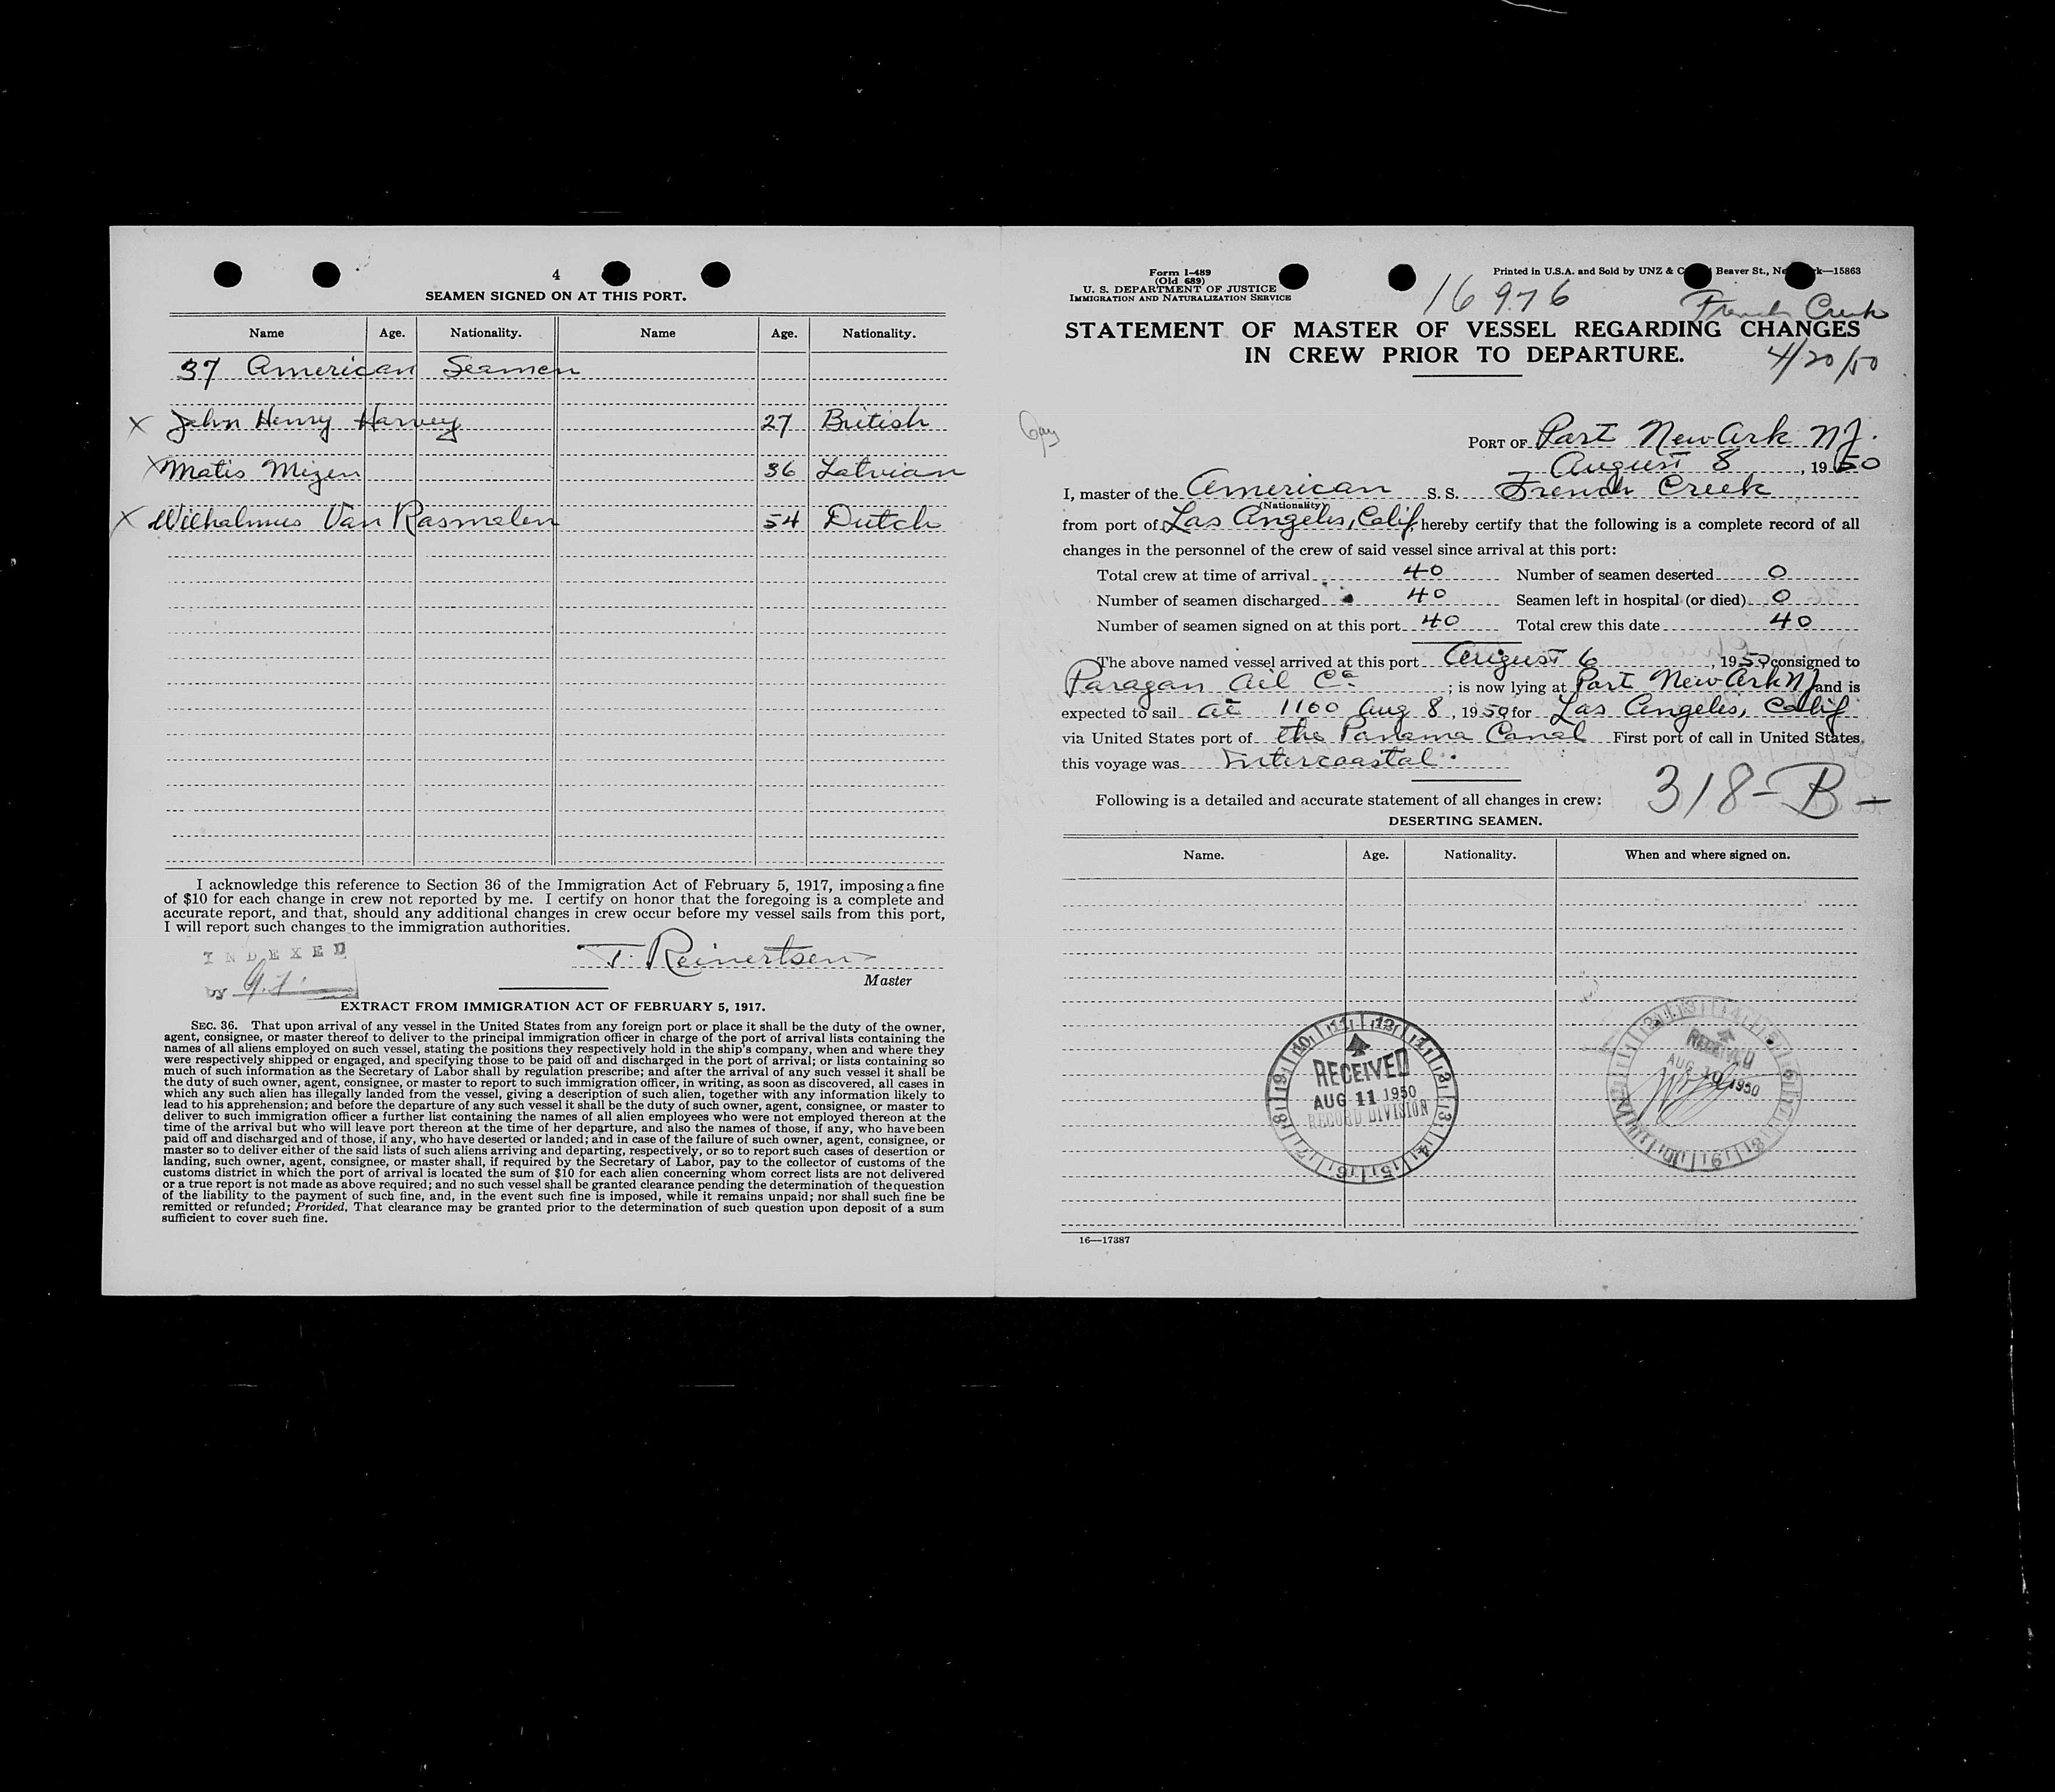 4
SEAMEN SIGNED ON AT THIS PORT.
Name Age. Nationality. Name Age. Nationality.
37 American Seamen
X John Henry Harvey 27 British
X Matis Mizen 36 Latvian
X Wilhalmus Van Rasmalen 54 Dutch
I acknowledge this reference to Section 36 of the Immigration Act of February 5, 1917, imposing a fine
of $10 for each change in crew not reported by me. I certify on honor that the foregoing is a complete and
accurate report, and that, should any additional changes in crew occur before my vessel sails from this port,
I will report such changes to the immigration authorities.
INDEXED
by
T. Reinertsen
Master
EXTRACT FROM IMMIGRATION ACT OF FEBRUARY 5, 1917.
SEC. 36. That upon arrival of any vessel in the United States from any foreign port or place it shall be the duty of the owner,
agent, consignee, or master thereof to deliver to the principal immigration officer in charge of the port of arrival lists containing the
names of all aliens employed on such vessel, stating the positions they respectively hold in the ship's company, when and where they
were respectively shipped or engaged, and specifying those to be paid off and discharged in the port of arrival; or lists containing so
much of such information as the Secretary of Labor shall by regulation prescribe; and after the arrival of any such vessel it shall be
the duty of such owner, agent, consignee, or master to report to such immigration officer, in writing, as soon as discovered, all cases in
which any such alien has illegally landed from the vessel, giving a description of such alien, together with any information likely to
lead to his apprehension; and before the departure of any such vessel it shall be the duty of such owner, agent, consignee, or master to
deliver to such immigration officer a further list containing the names of all alien employees who were not employed thereon at the
time of the arrival but who will leave port thereon at the time of her departure, and also the names of those, if any, who have been
paid off and discharged and of those, if any, who have deserted or landed; and in case of the failure of such owner, agent, consignee, or
master so to deliver either of the said lists of such aliens arriving and departing, respectively, or so to report such cases of desertion or
landing, such owner, agent, consignee, or master shall, if required by the Secretary of Labor, pay to the collector of customs of the
customs district in which the port of arrival is located the sum of $10 for each alien concerning whom correct lists are not delivered
or a true report is not made as above required; and no such vessel shall be granted clearance pending the determination of the question
of the liability to the payment of such fine, and, in the event such fine is imposed, while it remains unpaid; nor shall such fine be
remitted or refunded; Provided, That clearance may be granted prior to the determination of such question upon deposit of a sum
sufficient to cover such fine.
Form I-489
(Old 689)
U. S. DEPARTMENT OF JUSTICE
IMMIGRATION AND NATURALIZATION SERVICE
Printed in U.S.A. and Sold by UNZ & C Beaver St., Ne k—15863
16976
French Creek
STATEMENT OF MASTER OF VESSEL REGARDING CHANGES
IN CREW PRIOR TO DEPARTURE.
4/20/50
PORT OF Port NewArk NJ.
August 8, 1950
I, master of the American S. S. French Creek
(Nationality)
from port of Los Angeles, Calif, hereby certify that the following is a complete record of all
changes in the personnel of the crew of said vessel since arrival at this port:
Total crew at time of arrival 40 Number of seamen deserted 0
Number of seamen discharged 40 Seamen left in hospital (or died) 0
Number of seamen signed on at this port 40 Total crew this date 40
The above named vessel arrived at this port August 6, 1950 consigned to
Paragon Oil Co; is now lying at Port NewArk NJ and is
expected to sail at 1100 Aug 8, 1950 for Los Angeles, Calif
via United States port of the Panama Canal First port of call in United States,
this voyage was Intercoastal.
Following is a detailed and accurate statement of all changes in crew:
318-B-
DESERTING SEAMEN.
Name. Age. Nationality. When and where signed on.
RECEIVED
AUG 11 1950
RECORD DIVISION
RECEIVED
AUG 10 1950
16—17387